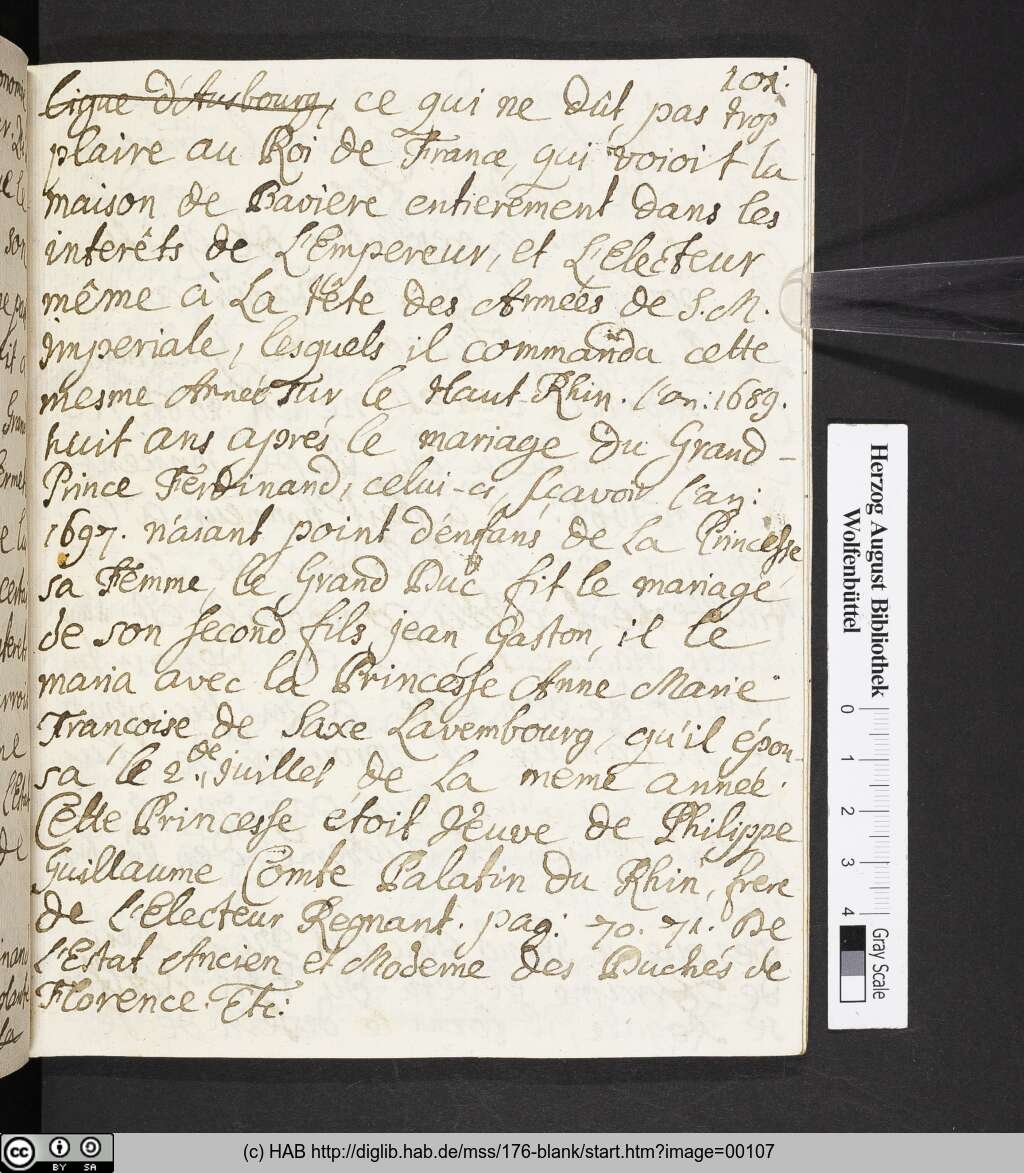 101.
Ligue d'Ausbourg, ce qui ne dût pas trop
plaire au Roi de France, qui voioit la
maison de Baviere entierement dans les
interêts de L'Empereur, et L'Electeur
même à La tête des Armées de S. M.
Imperiale, lesquels il commanda cette
mesme Année sur le Haut Rhin. l'an: 1689.
huit ans aprés le mariage du Grand-
Prince Ferdinand, celui-ci, sçavoir l'an:
1697. n'aiant point d'enfans de La Princesse
sa Femme, le Grand Duc fit le mariage
de son second fils jean Gaston, il le
maria avec la Princesse Anne Marie
Francoise de Saxe Lavembourg, qu'il épou-
sa le 2.de Juillet de La meme année.
Cette Princesse etoit Veuve de Philippe
Guillaume Comte Palatin du Rhin, frere
de L'Electeur Regnant. pag: 70. 71. De
L'Estat Ancien et Moderne des Duchés de
Florence. Etc:
Herzog August Bibliothek
Wolfenbüttel
0 1 2 3 4
Gray Scale
cc BY SA
(c) HAB http://diglib.hab.de/mss/176-blank/start.htm?image=00107